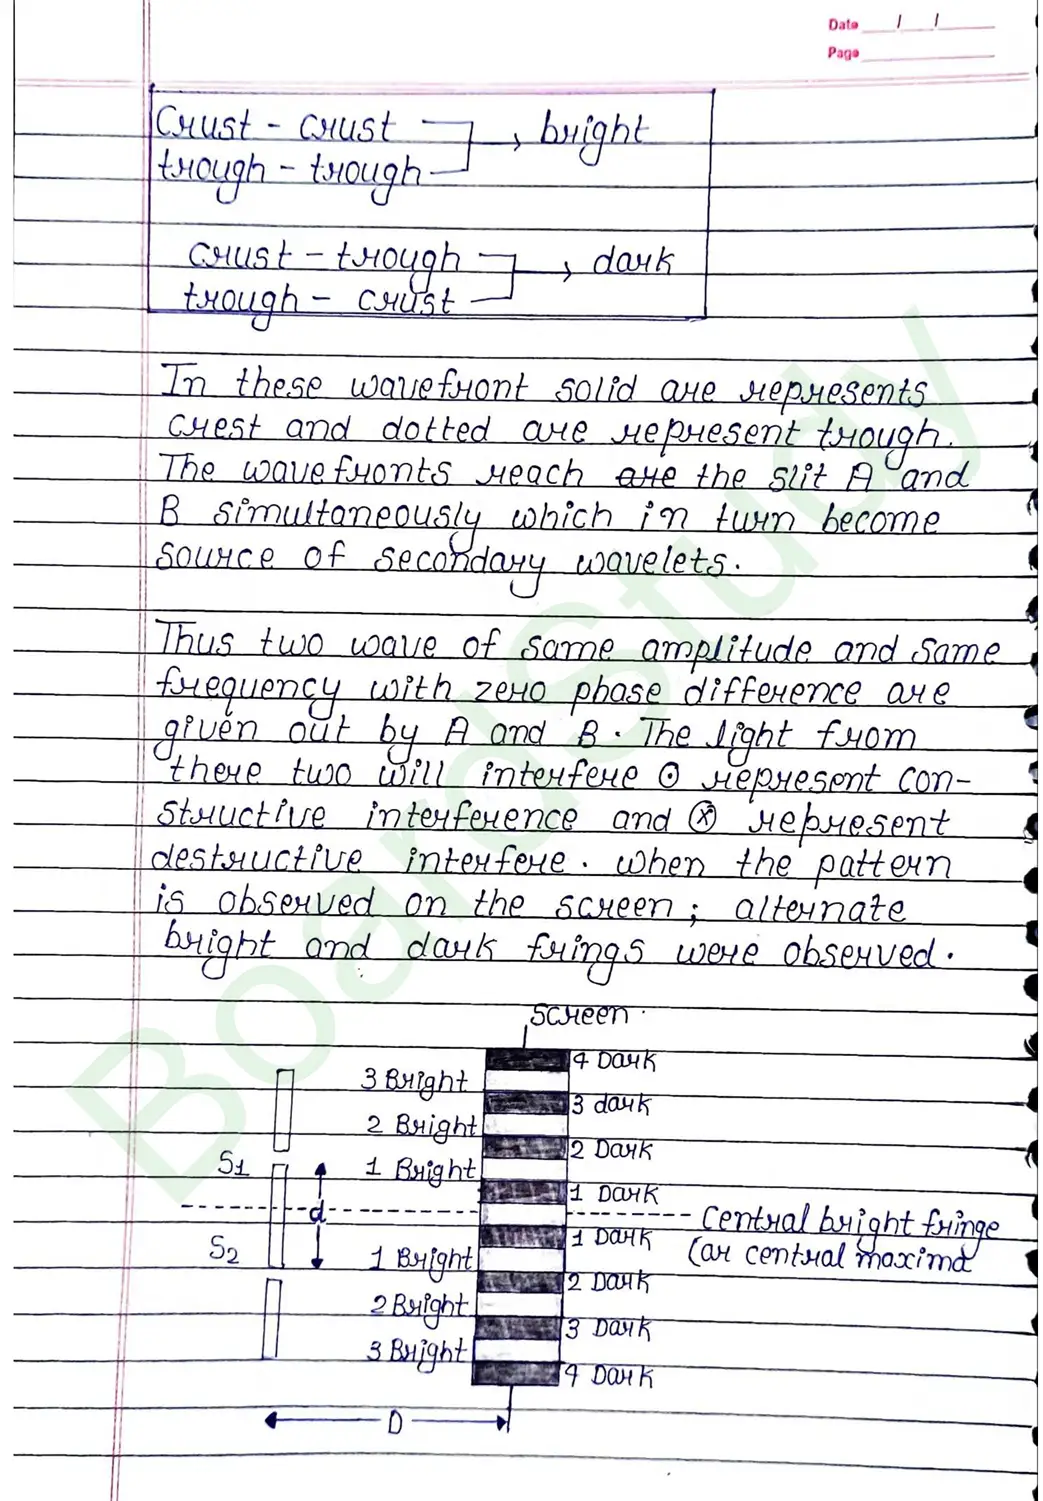 Date / /
Page
Crust - crust
trough - trough → bright
crust - trough
trough - crust → dark
In these wavefront solid are represents
crest and dotted are represent trough.
The wavefronts reach are the slit A and
B simultaneously which in turn become
source of secondary wavelets.
Thus two wave of same amplitude and same
frequency with zero phase difference are
given out by A and B. The light from
there two will interfere ⊙ represent con-
structive interference and ⊗ represent
destructive interfere. when the pattern
is observed on the screen; alternate
bright and dark frings were observed.
screen
4 Dark
3 Bright
3 dark
2 Bright
2 Dark
S1
1 Bright
1 Dark
d
Central bright fringe
(or central maxima
1 Dark
S2
1 Bright
2 Dark
2 Bright
3 Dark
3 Bright
4 Dark
D
BoardStudy